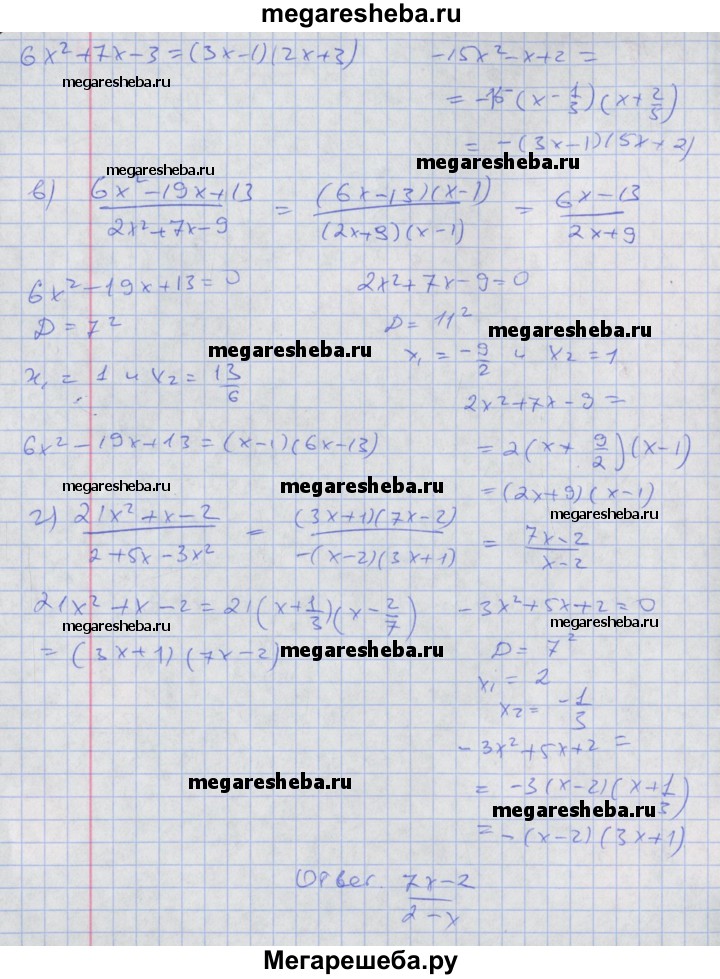 megaresheba.ru
6x²+7x-3=(3x-1)(2x+3)
-15x²-x+2=
megaresheba.ru
=-15(x-1/3)(x+2/5)
=-(3x-1)(5x+2)
megaresheba.ru
megaresheba.ru
в) (6x²-19x+13)/(2x²+7x-9) = ((6x-13)(x-1))/((2x+9)(x-1)) = (6x-13)/(2x+9)
6x²-19x+13=0
2x²+7x-9=0
D=7²
D=11²
megaresheba.ru
megaresheba.ru
x₁=-9/2 и x₂=1
x₁=1 и x₂=13/6
2x²+7x-9=
6x²-19x+13=(x-1)(6x-13)
=2(x+9/2)(x-1)
megaresheba.ru
megaresheba.ru
=(2x+9)(x-1)
megaresheba.ru
г) (21x²+x-2)/(2+5x-3x²) = ((3x+1)(7x-2))/(-(x-2)(3x+1)) = (7x-2)/(x-2)
21x²+x-2=21(x+1/3)(x-2/7)
-3x²+5x+2=0
megaresheba.ru
megaresheba.ru
=(3x+1)(7x-2)
megaresheba.ru
D=7²
x₁=2
x₂=-1/3
-3x²+5x+2=
megaresheba.ru
=-3(x-2)(x+1/3)
megaresheba.ru
=-(x-2)(3x+1)
Ответ. (7x-2)/(2-x)
Мегарешеба.ру